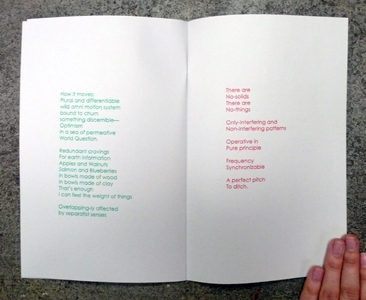 How it moves:
Plural and differentiable
wild omni motion system
bound to churn
something discernible—
Optimism
In a sea of permeative
World Question.
Redundant cravings
For earth information
Apples and Walnuts
Salmon and Blueberries
In bowls made of wood
In bowls made of clay
That's enough
I can feel the weight of things
Overlapping-ly affected
by separatist senses
There are
No-solids
There are
No-things
Only-interfering and
Non-interfering patterns
Operative in
Pure principle
Frequency
Synchronizable
A perfect pitch
To ditch.